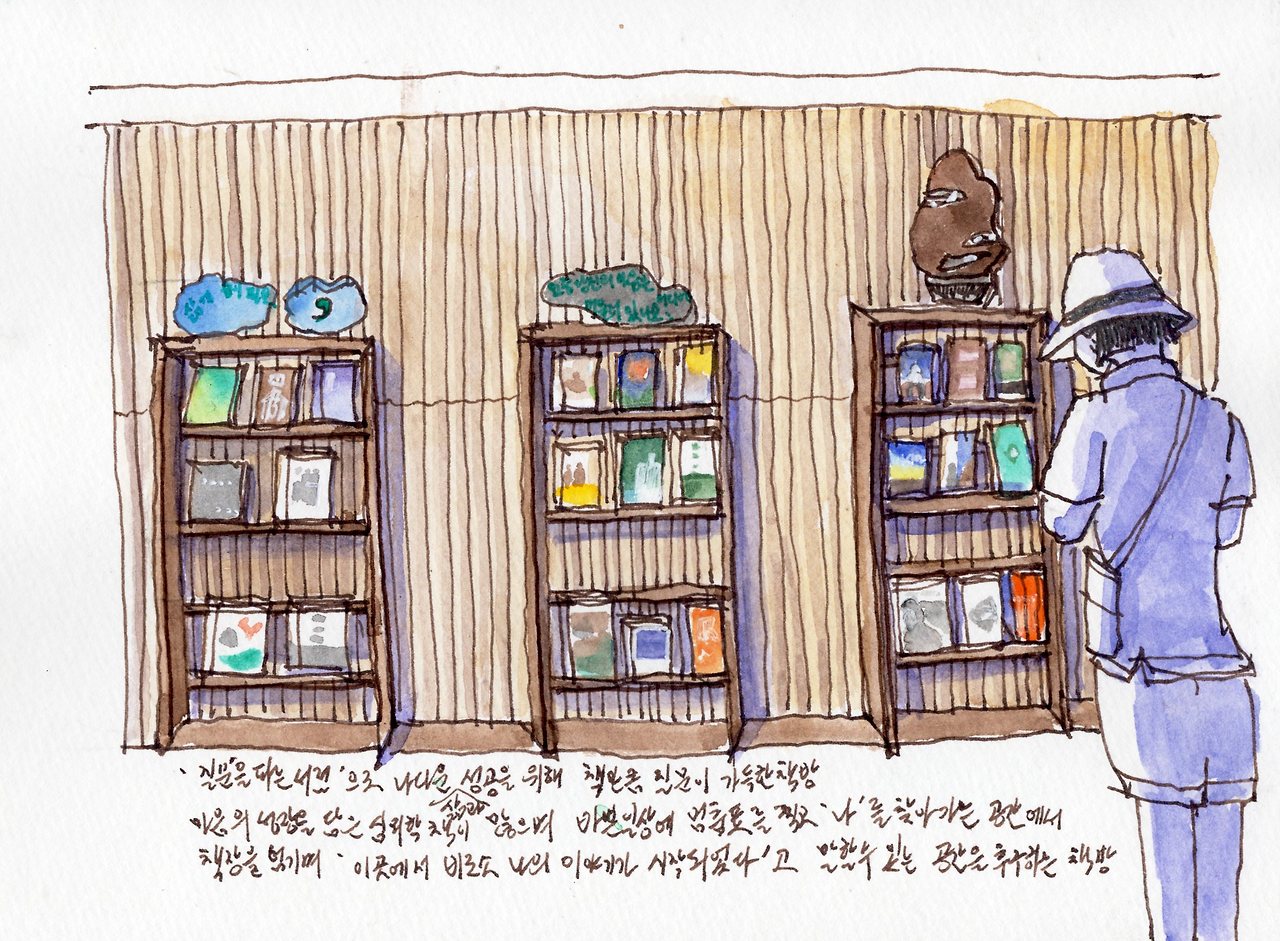 '질문을 파는 서점'으로 나다운 성공을 위해 책만큼 질문이 가득한 책방
삶과
마음의 성장을 담은 심리학 책이 많으며 바쁜일상에 멈춤표를 찍고 '나'를 찾아가는 공간에서
책장을 넘기며 '이곳에서 비로소 나의 이야기가 시작되었다'고 말할수 있는 공간을 추구하는 책방